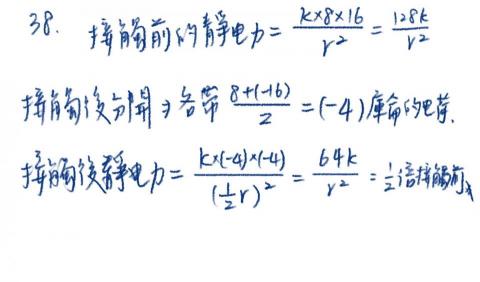 38. 接觸前的靜電力 = \frac{k×8×16}{r^2} = \frac{128k}{r^2}
接觸後分開⇒各帶 \frac{8+(-16)}{2} = (-4)庫侖的电荷.
接觸後靜電力 = \frac{k×(-4)×(-4)}{(\frac{1}{2}r)^2} = \frac{64k}{r^2} = \frac{1}{2}倍接觸前